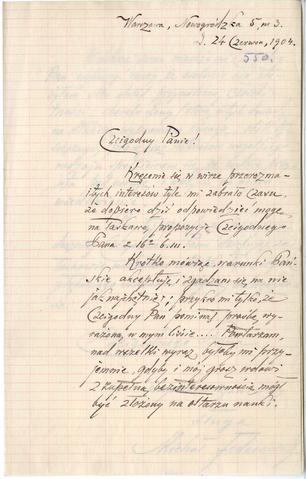 Warszawa, Nowogrodzka 5, m 3.
d. 24 Czerwca, 1904.
550.
Czcigodny Panie!
Kręcenie się w wirze przeróżnych
interesów tyle mi zabrało czasu,
że dopiero dziś odpowiedzieć mogę
na łaskawą propozycję Czcigodnego
Pana z 16
Krótko mówiąc, warunki Pań-
skie akceptuję i zgadzam się na nie
jak najchętniej; przykro mi tylko, że
Czcigodny Pan pominął prośbę, wy-
rażoną w mym liście.... Powtarzam,
nad wszelki wyraz, byłoby mi przy-
jemnie, gdyby i mój grosz wdowi
z zupełną bezinteresownością mógł
być złożony na ołtarzu nauki.